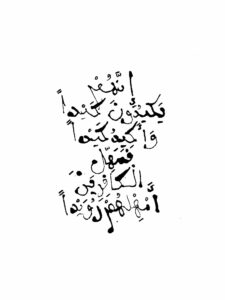 إنَّهُمْ
يَكِيدُونَ كَيْداً
وَأَكِيدُ كَيْداً
فَمَهِّلِ
الْكَافِرِينَ
أَمْهِلْهُمْ رُوَيْداً